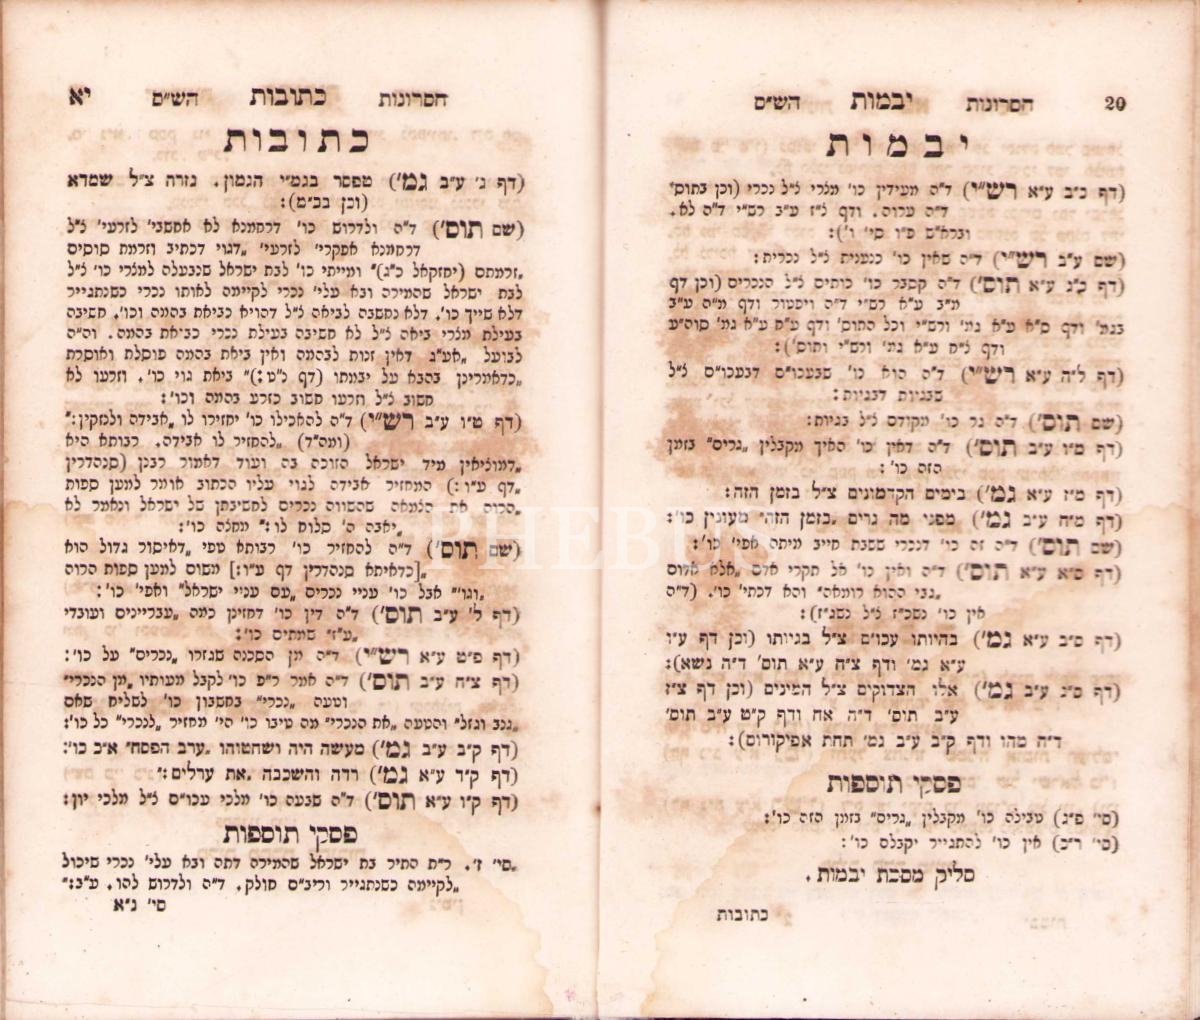 20 חסרונות יבמות הש״ס
יבמות
(דף כ״ב ע״א רש״י) ד״ה מעידין כו׳ מלרי ל״ל נכרי (וכן בתוס׳
ד״ה ערוה. ודף ל״ז ע״ב רש״י ד״ה לא.
וברא״ש פ״ו סי׳ ו׳):
(שם ע״ב רש״י) ד״ה שאין כו׳ כנענית ל״ל נכרית:
(דף כ״ג ע״א תוס׳) ד״ה קסבר כו׳ כותים ל״ל הנכרים (וכן דף
מ״ב ע״א רש״י ד״ה ויפטור ודף מ״ה ע״ב
בגמ׳ ודף ס״א ע״א גמ׳ ורש״י וכל התוס׳ ודף ע״ח ע״א גמ׳ סוה״ע
ודף ל״ח ע״א גמ׳ ורש״י ותוס׳):
(דף ל״ה ע״א רש״י) ד״ה הוא כו׳ שבעכו״ם דבעכו״ם ל״ל
שבגיות דבגיות:
(שם תוס׳) ד״ה גר כו׳ מקודם ל״ל בגיות:
(דף מ״ו ע״ב תוס׳) ד״ה דאין כו׳ האיך מקבלין „גרים״ בזמן
הזה כו׳:
(דף מ״ז ע״א גמ׳) בימים הקדמונים צ״ל בזמן הזה:
(דף מ״ח ע״ב גמ׳) מפני מה גרים „בזמן הזה״ מעונין כו׳:
(שם תוס׳) ד״ה זה כו׳ דנכרי ששבת חייב מיתה אפי׳ כו׳:
(דף ס״א ע״א תוס׳) ד״ה ואין כו׳ אל תקרי אדם „אלא אדום
„גבי ההוא רומאה״ והא דכתי׳ כו׳. (ד״ה
אין כו׳ נשכ״ז ל״ל נשג״ז):
(דף ס״ב ע״א גמ׳) בהיותו עכו״ם צ״ל בגיותו (וכן דף ע״ו
ע״א גמ׳ ודף צ״ח ע״א תוס׳ ד״ה נשא):
(דף ס״ג ע״ב גמ׳) אלו הצדוקים צ״ל המינים (וכן דף צ״ז
ע״ב תוס׳ ד״ה אח ודף ק״ט ע״ב תוס׳
ד״ה מהו ודף ק״ב ע״ב גמ׳ תחת אפיקורום):
פסקי תוספות
(סי׳ פ״ג) טבילה כו׳ מקבלין „גרים״ בזמן הזה כו׳:
(סי׳ ר״כ) אין כו׳ להתגייר יקבלם כו׳:
סליק מסכת יבמות.
כתובות
חסרונות כתובות הש״ס יא
כתובות
(דף ג׳ ע״ב גמ׳) טפסר בגמ״י הגמון. גזרה צ״ל שמדא
(וכן בכ״מ):
(שם תוס׳) ד״ה ולדרוש כו׳ דרחמנא לא אחשבי׳ לזרעי׳ ל״ל
דרחמנא אפקרי׳ לזרעי׳ „דגוי דכתיב וזרמת סוסים
„זרמתם (יחזקאל כ״ג)״ ומייתי כו׳ לבת ישראל שנבעלה למלרי כו׳ ל״ל
לבת ישראל שהמירה ובא עלי׳ נכרי לקיימה לאותו נכרי כשנתגייר
דלא שייך כו׳. דלא נחשבה לביאה ל״ל דהויא כביאת בהמה וכו׳. חשיבה
בעילת מלרי ביאה ל״ל לא חשיבה בעילת נכרי כביאת בהמה. וה״ה
לבועל „אע״ג דאין זנות לבהמה ואין ביאת בהמה פוסלת ואוסרת
„כדאמרינן בהבא על יבמתו (דף נ״ט:)״ ביאת גוי כו׳. וזרעו לא
חשוב ל״ל וזרעו חשוב כזרע בהמה וכו׳:
(דף ט״ו ע״ב רש״י) ד״ה להאכילו כו׳ יחזירו לו „אבידה ולנזקין:״
(ומה״ד) „להחזיר לו אבידה. רבותא היא
„דמוליאין מיד ישראל הזוכה בה ועוד דאמור רבנן (סנהדרין
„דף ע״ו:) המחזיר אבידה לגוי עליו הכתוב אומר למען ספות
„הרוה את הלמאה שהשווה נכרים לחשיבתן של ישראל ונאמר לא
„יאבה ה׳ סלוח לו:״ מחלה כו׳:
(שם תוס׳) ד״ה להחזיר כו׳ רבותא טפי „דאיסור גדול הוא
„[כדאיתא סנהדרין דף ע״ו:] משום למען ספות הרוה
„וגו׳״ אבל כו׳ עניי נכרים „עם עניי ישראל״ ואפי׳ כו׳:
(דף ל׳ ע״ב תוס׳) ד״ה דין כו׳ דחזינן כמה „עבריינים ועובדי
„ע״ז״ שמתים כו׳:
(דף פ״ט ע״א רש״י) ד״ה מן הסכנה שגזרו „נכרים״ על כו׳:
(דף צ״ח ע״ב תוס׳) ד״ה אמר ר״פ כו׳ לקבל מעותיו „מן הנכרי״
וטעה „נכרי״ בחשבון כו׳ לשליח שאם
„גנב וגזל״ והטעה „את הנכרי״ מה טיבו כו׳ הי׳ מחזיר „לנכרי״ כל כו׳:
(דף ק״ב ע״ב גמ׳) מעשה היה ושחטוהו „ערב הפסח״ א״כ כו׳:
(דף ק״ד ע״א גמ׳) רדה והשכבה „את ערלים:״
(דף ק״ו ע״א תוס׳) ד״ה שבעה כו׳ מלכי עכו״ם ל״ל מלכי יון:
פסקי תוספות
„סי׳ ז׳. ר״ת התיר בת ישראל שהמירה דתה ובא עלי׳ נכרי שיכול
„לקיימה כשנתגייר וריב״ם חולק. ד״ה ולדרוש להו. ע״ב:״
סי׳ נ״א
PHEBUS